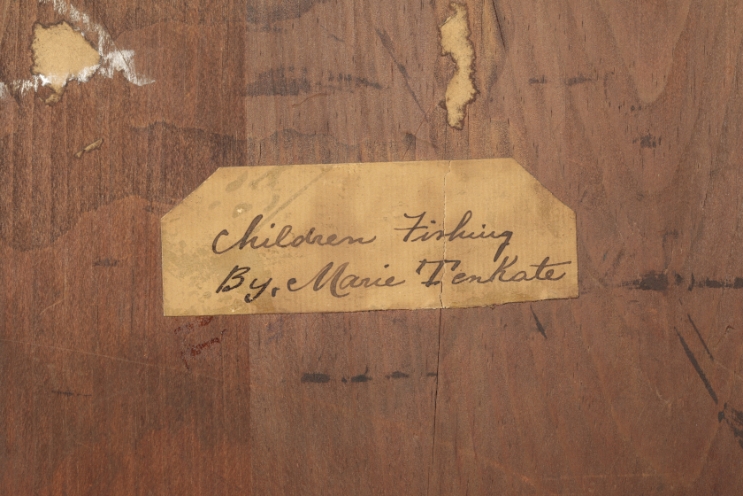 Children Fishing
By, Marie TenKate